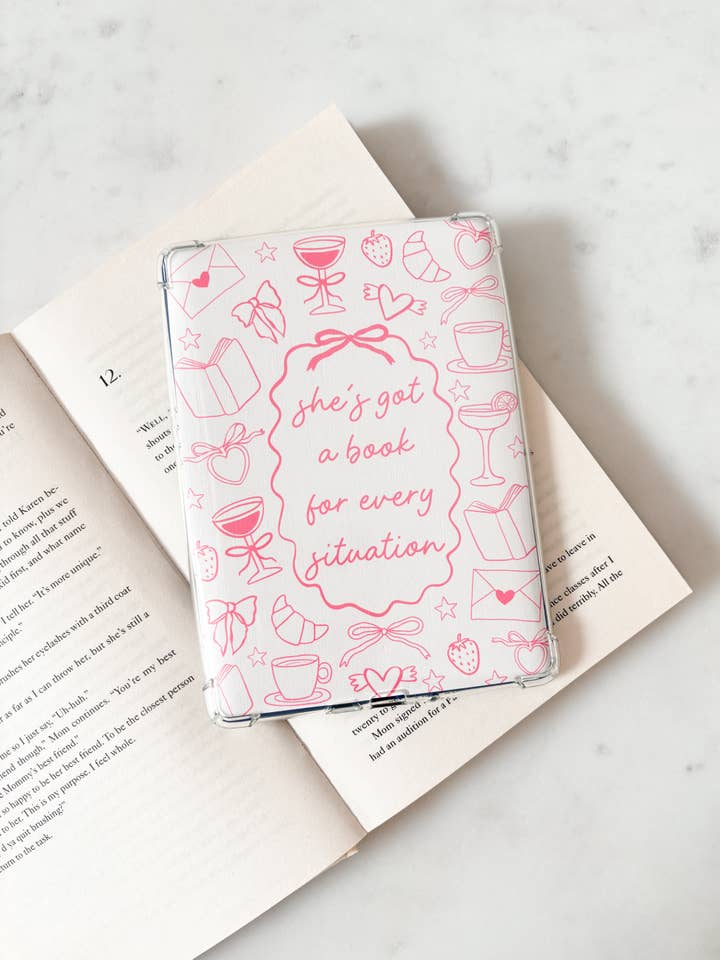 she's got
a book
for every
situation
told Karen be-
to know, plus we
through all that stuff
kid first, and what name
I tell her. "It's more unique."
nciple."
rushes her eyelashes with a third coat
as far as I can throw her, but she's still a
me so I just say, "Uh-huh."
friend though." Mom continues. "You're my best
Mommy's best friend."
so happy to be her best friend. To be the closest person
to her. This is my purpose. I feel whole.
d ya quit brushing?"
turn to the task.
12.
"WELL,
shouts
to the
one
to leave in
once classes after I
did terribly. All the
twenty to
Mom signed
had an audition for a